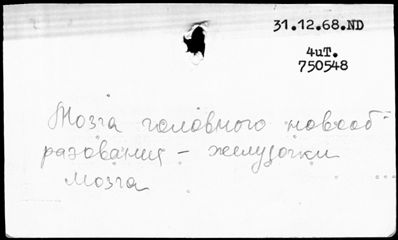 31.12.68.ND
4иТ.
750548
Мозга головного новооб-
разования - желудочки
мозга